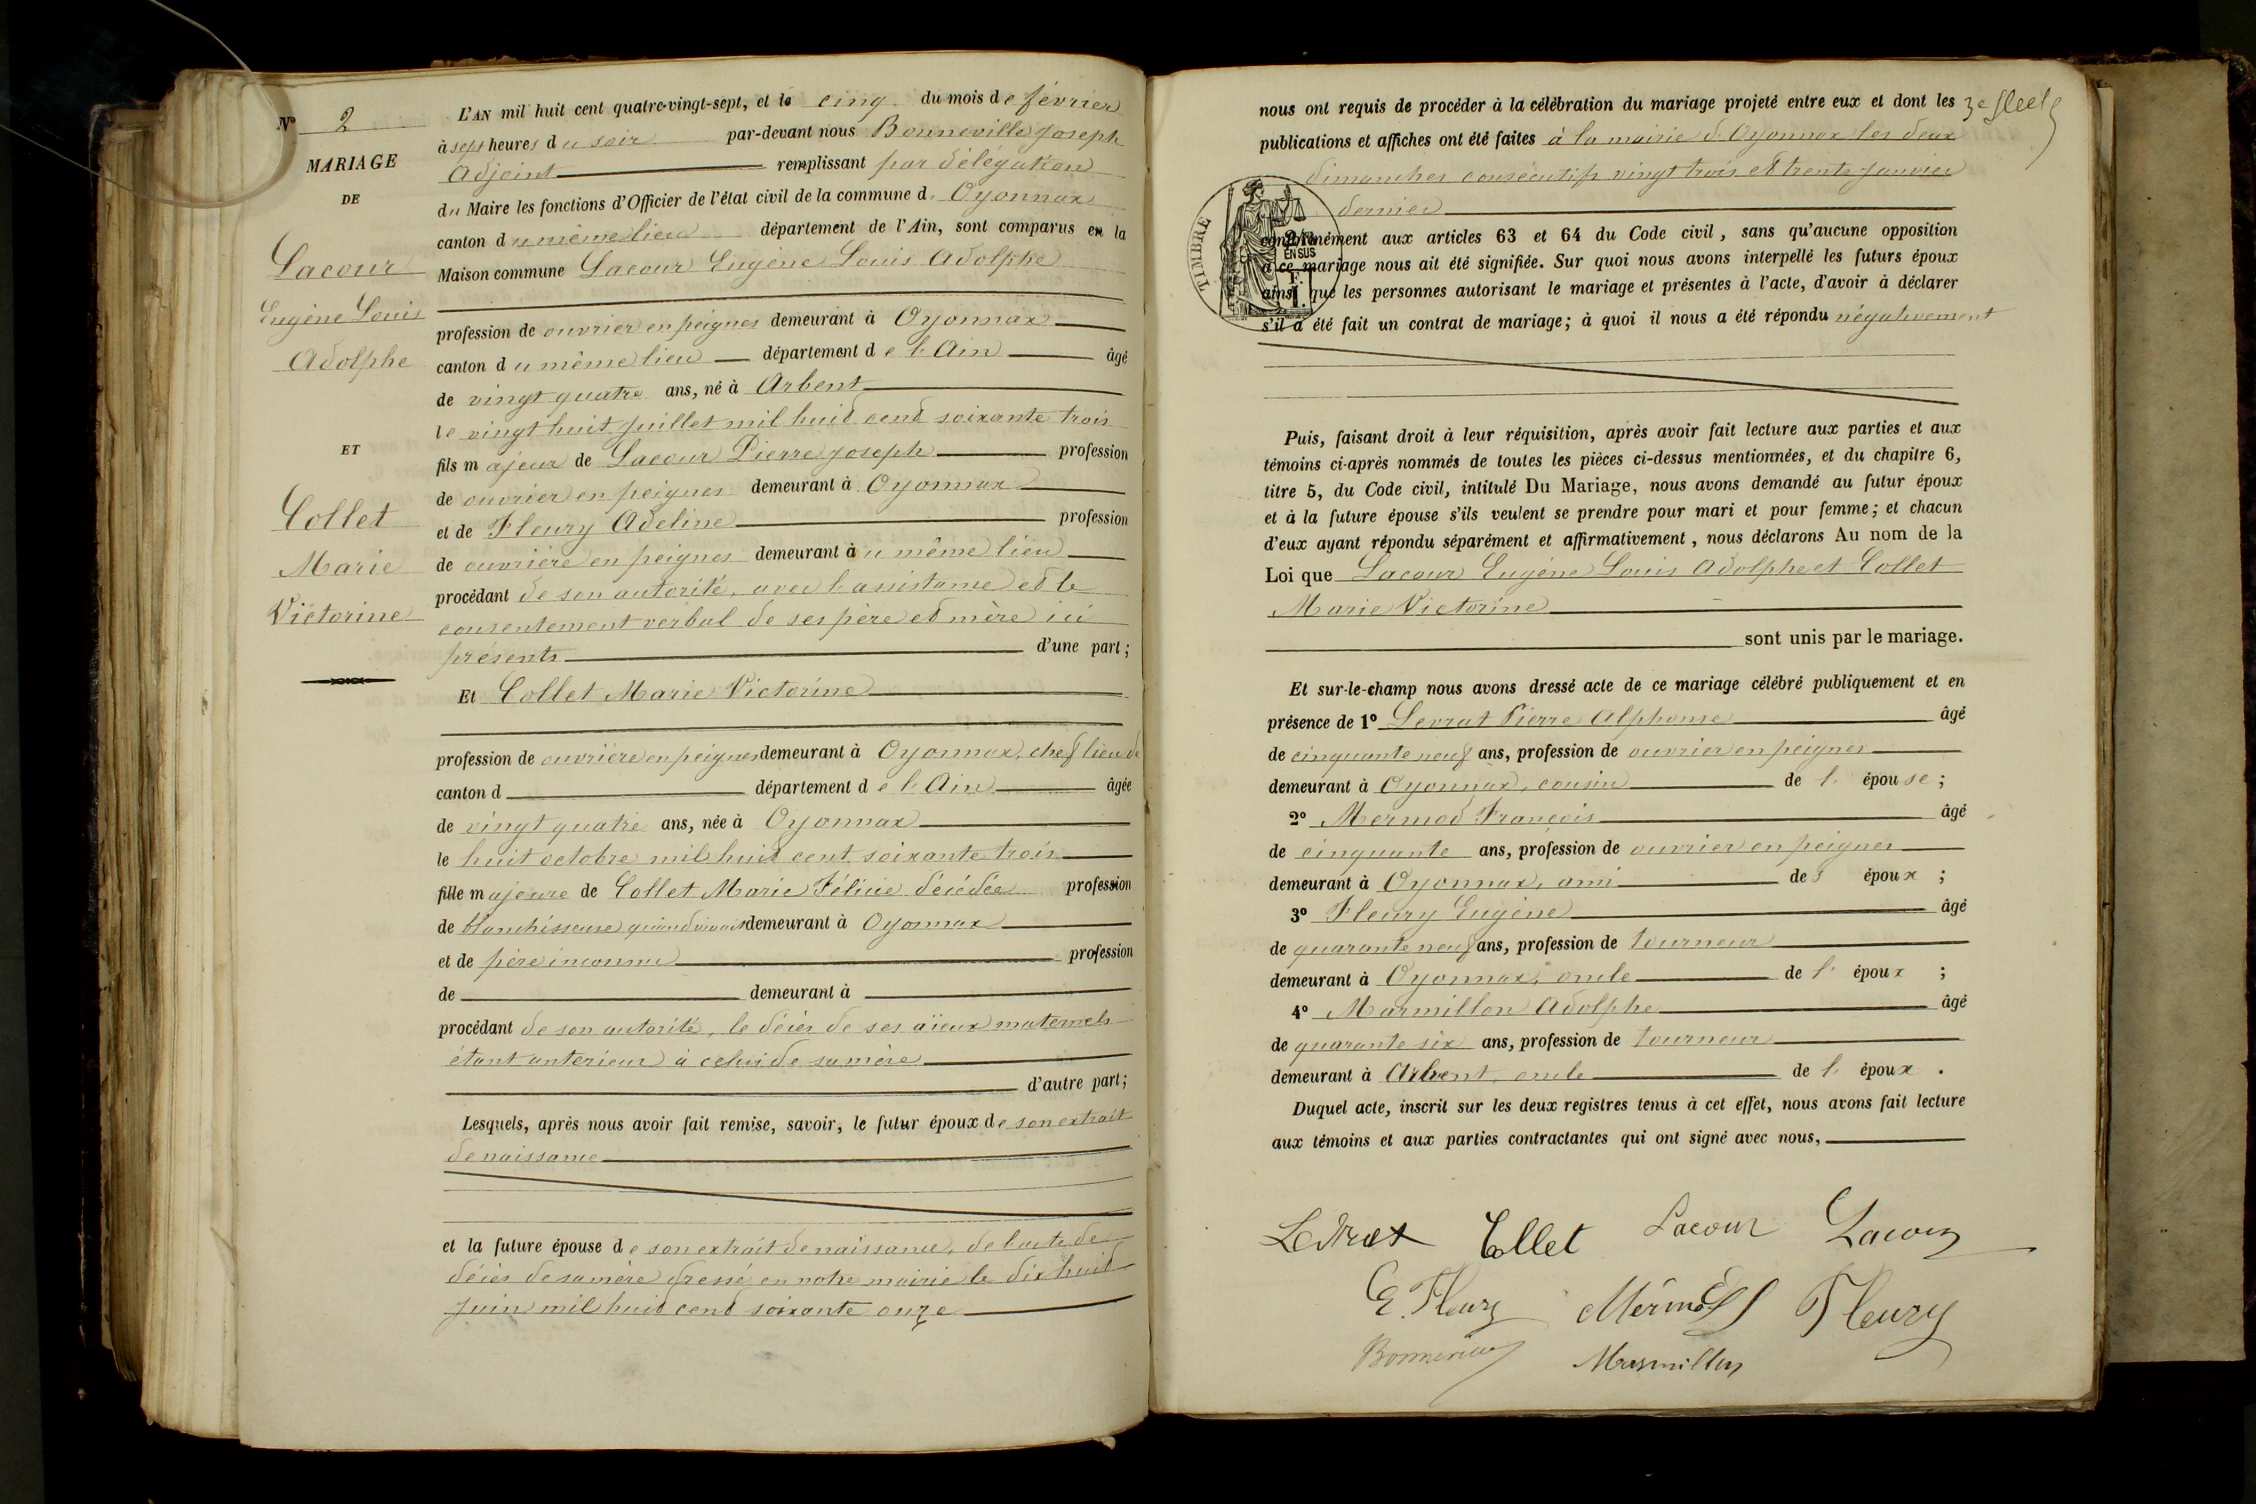 Nº 2
MARIAGE
DE
Lacour
Eugène Louis
Adolphe
ET
Collet
Marie
Victorine
L'AN mil huit cent quatre-vingt-sept, et le cinq du mois de février
à sept heures du soir par-devant nous Bonneville Joseph
Adjoint remplissant par délégation
du Maire les fonctions d'Officier de l'état civil de la commune d' Oyonnax
canton du même lieu département de l'Ain, sont comparus en la
Maison commune Lacour Eugène Louis Adolphe
profession de ouvrier en peignes demeurant à Oyonnax
canton du même lieu département de l'Ain âgé
de vingt quatre ans, né à Arbent
le vingt huit juillet mil huit cent soixante trois
fils majeur de Lacour Pierre Joseph profession
de ouvrier en peignes demeurant à Oyonnax
et de Fleury Adeline profession
de ouvrière en peignes demeurant au même lieu
procédant de son autorité, avec l'assistance et le
consentement verbal de ses père et mère ici
présents d'une part;
Et Collet Marie Victorine
profession de ouvrière en peignes demeurant à Oyonnax, chef lieu de
canton d département de l'Ain âgée
de vingt quatre ans, née à Oyonnax
le huit octobre mil huit cent soixante trois
fille majeure de Collet Marie Félicie décédée profession
de blanchisseuse quand vivait demeurant à Oyonnax
et de père inconnu profession
de demeurant à
procédant de son autorité, le décès de ses aïeux maternels
étant antérieur à celui de sa mère
d'autre part;
Lesquels, après nous avoir fait remise, savoir, le futur époux de son extrait
de naissance
et la future épouse de son extrait de naissance, de l'acte de
décès de sa mère dressé en notre mairie le dix huit
juin mil huit cent soixante onze
nous ont requis de procéder à la célébration du mariage projeté entre eux et dont les
publications et affiches ont été faites à la mairie d'Oyonnax les deux
dimanches consécutifs vingt trois et trente janvier
dernier
conformément aux articles 63 et 64 du Code civil, sans qu'aucune opposition
à ce mariage nous ait été signifiée. Sur quoi nous avons interpellé les futurs époux
ainsi que les personnes autorisant le mariage et présentes à l'acte, d'avoir à déclarer
s'il a été fait un contrat de mariage; à quoi il nous a été répondu négativement
TIMBRE
EN SUS
Puis, faisant droit à leur réquisition, après avoir fait lecture aux parties et aux
témoins ci-après nommés de toutes les pièces ci-dessus mentionnées, et du chapitre 6,
titre 5, du Code civil, intitulé Du Mariage, nous avons demandé au futur époux
et à la future épouse s'ils veulent se prendre pour mari et pour femme; et chacun
d'eux ayant répondu séparément et affirmativement, nous déclarons Au nom de la
Loi que Lacour Eugène Louis Adolphe et Collet
Marie Victorine
sont unis par le mariage.
Et sur-le-champ nous avons dressé acte de ce mariage célébré publiquement et en
présence de 1º Levrat Pierre Alphonse âgé
de cinquante neuf ans, profession de ouvrier en peignes
demeurant à Oyonnax, cousin de l' épouse;
2º Mermod François âgé
de cinquante ans, profession de ouvrier en peignes
demeurant à Oyonnax, ami des époux;
3º Fleury Eugène âgé
de quarante neuf ans, profession de tourneur
demeurant à Oyonnax, oncle de l' époux;
4º Marmillon Adolphe âgé
de quarante six ans, profession de tourneur
demeurant à Arbent, oncle de l' époux.
Duquel acte, inscrit sur les deux registres tenus à cet effet, nous avons fait lecture
aux témoins et aux parties contractantes qui ont signé avec nous,
Levrat Collet Lacour Lacour
E. Fleury Mermod Fleury
Bonneville Marmillon